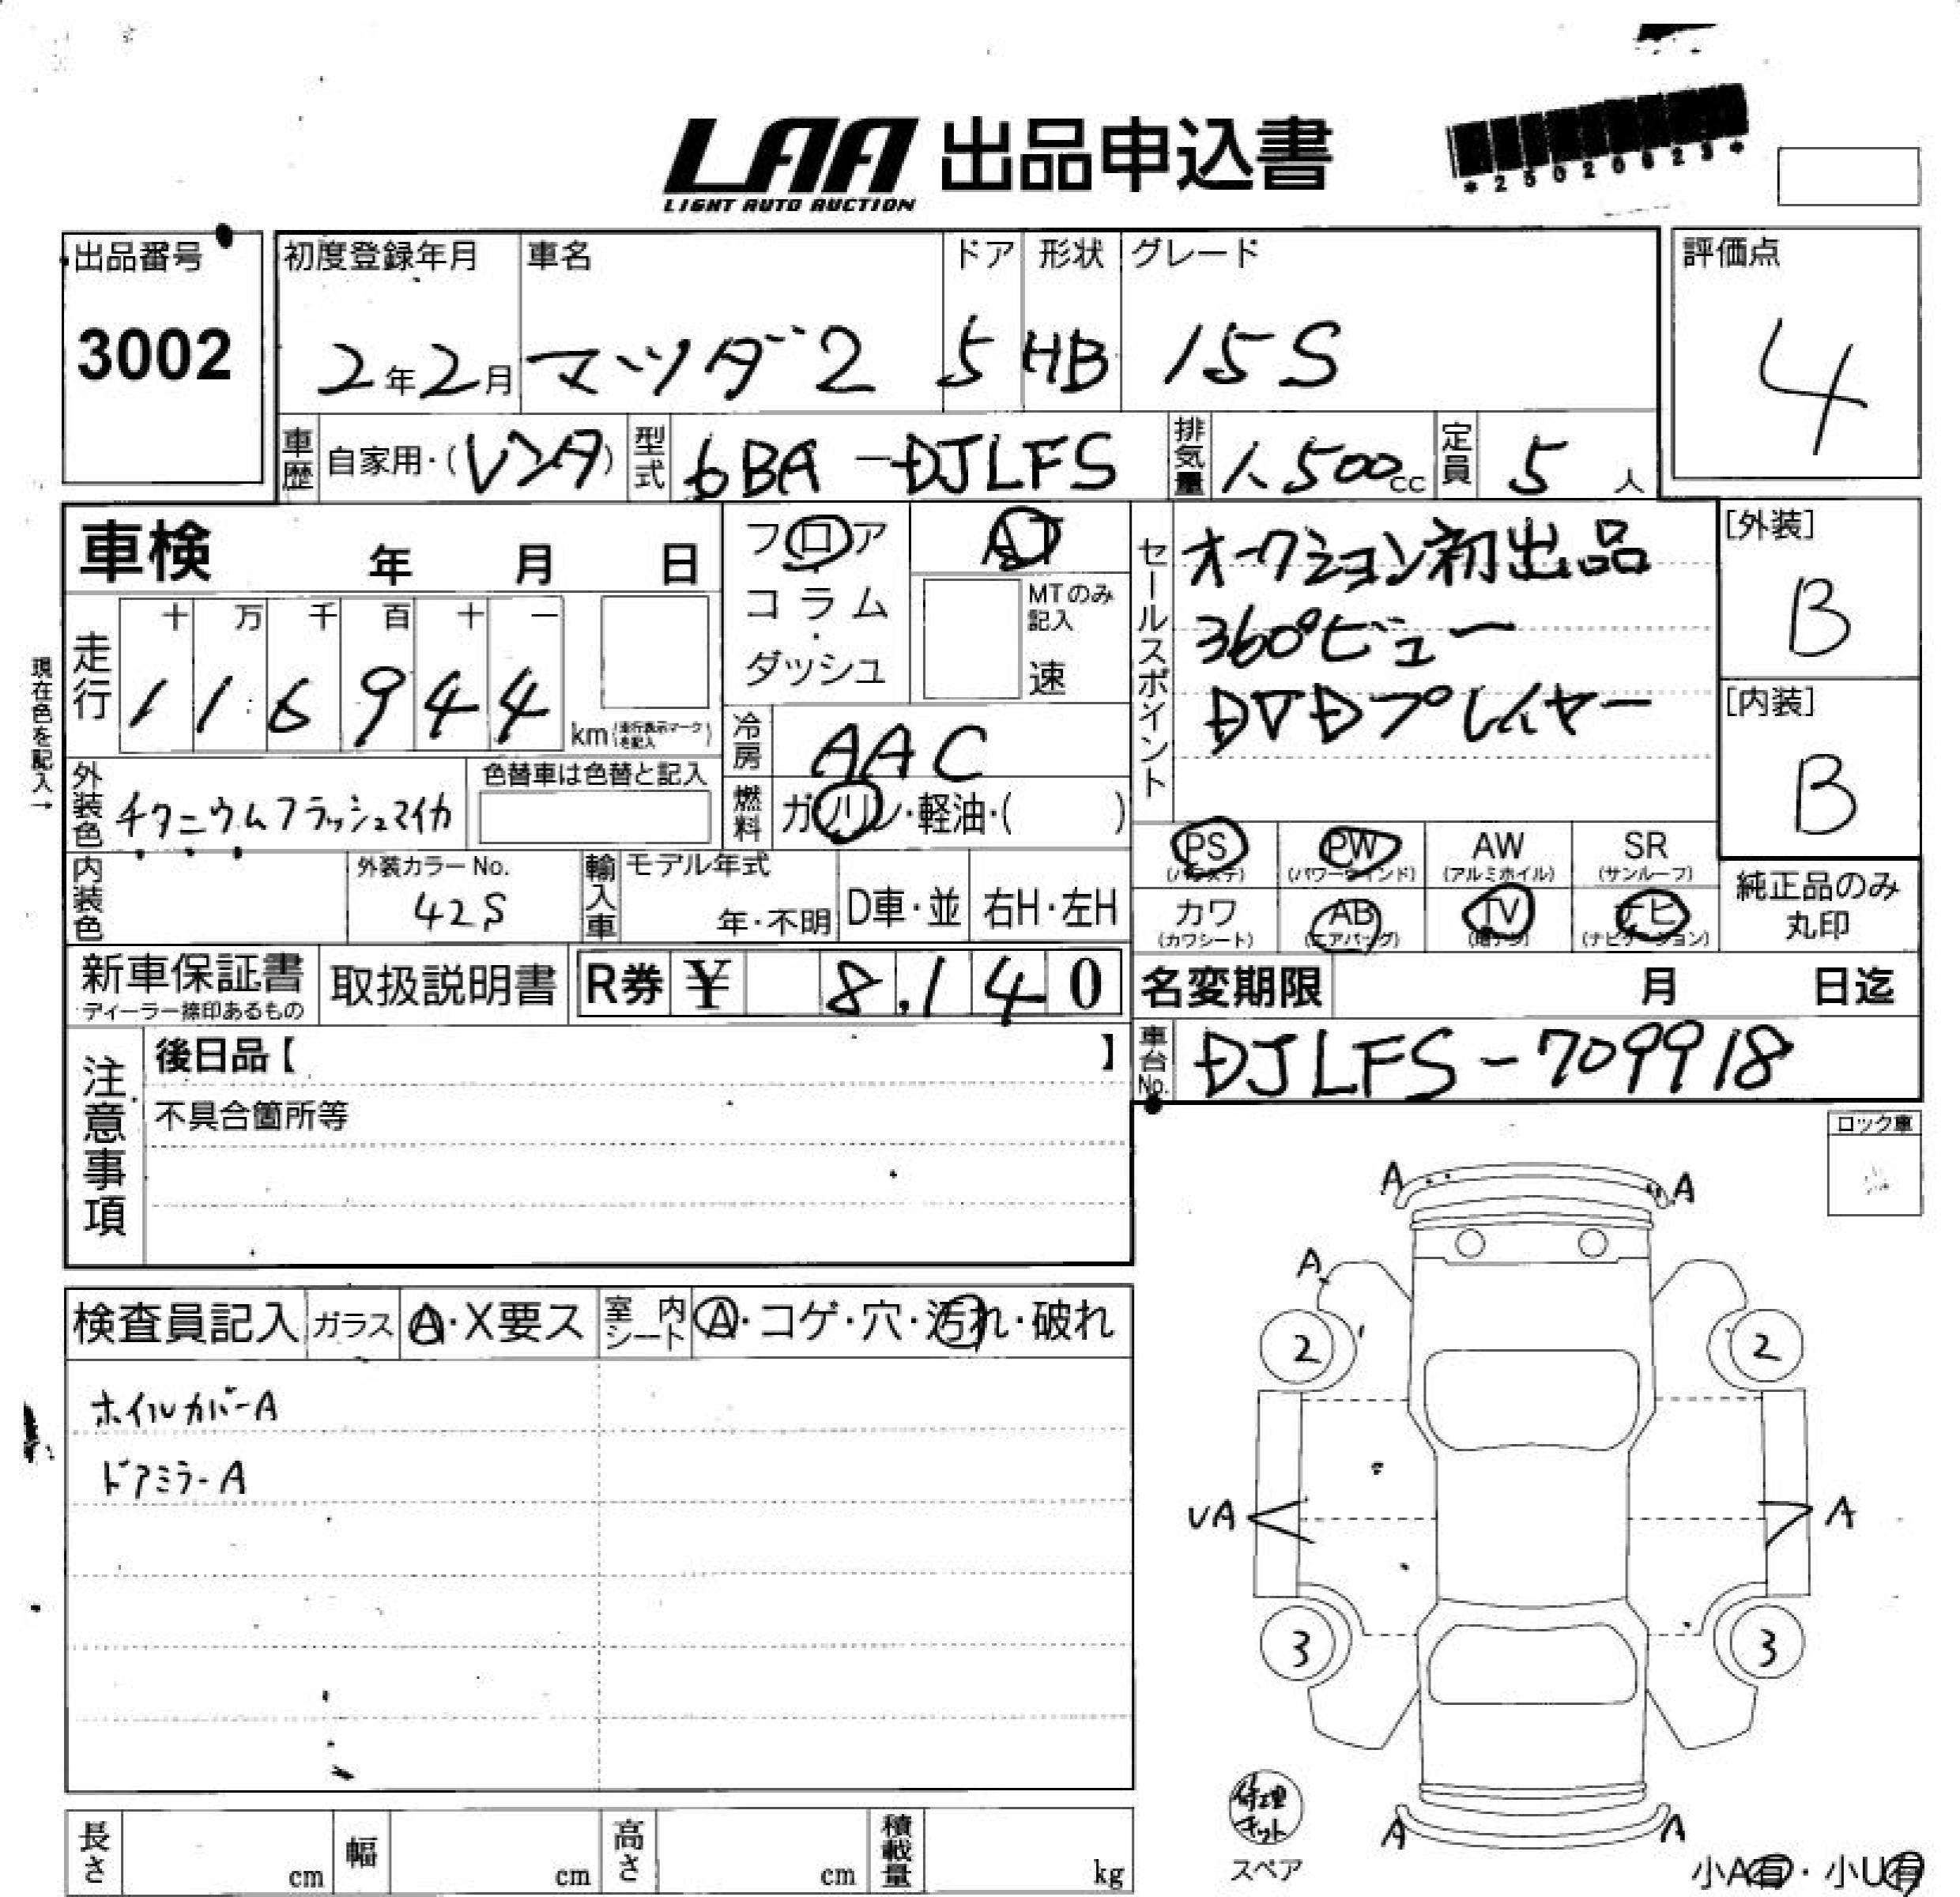 LAA 出品申込書
LIGHT AUTO AUCTION
出品番号
3002
初度登録年月
2年2月
車名
マツダ2
ドア
5
形状
HB
グレード
15S
評価点
4
車歴 自家用・(レンタ)
型式 6BA-DJLFS
排気量 1,500cc
定員 5人
車検 年 月 日
フロア
・
コラム
・
ダッシュ
AT
MTのみ
記入
速
セールスポイント
オークション初出品
360°ビュー
DVDプレイヤー
[外装]
B
[内装]
B
現在色を記入→
走行
十 万 千 百 十 一
1 1 6 9 4 4
km(走行表示マークを記入)
冷房 AAC
外装色 チタニウムフラッシュマイカ
色替車は色替と記入
燃料 ガソリン・軽油・( )
PS
(パワステ)
PW
(パワーウインド)
AW
(アルミホイル)
SR
(サンルーフ)
カワ
(カワシート)
AB
(エアバッグ)
TV
ナビ
(ナビゲーション)
純正品のみ
丸印
内装色
外装カラーNo.
42S
輸入車
モデル年式
年・不明
D車・並
右H・左H
新車保証書
ディーラー捺印あるもの
取扱説明書
R券 ¥ 8,140
名変期限 月 日迄
車台No. DJLFS-709918
注意事項
後日品【 】
不具合箇所等
ロック車
検査員記入
ガラス A・X要ス
室内シート A・コゲ・穴・汚れ・破れ
ホイルカバーA
ドアミラーA
A A
A
2 2
UA A
3 3
修理キット
スペア
A A
小A有・小U有
長さ cm
幅 cm
高さ cm
積載量 kg